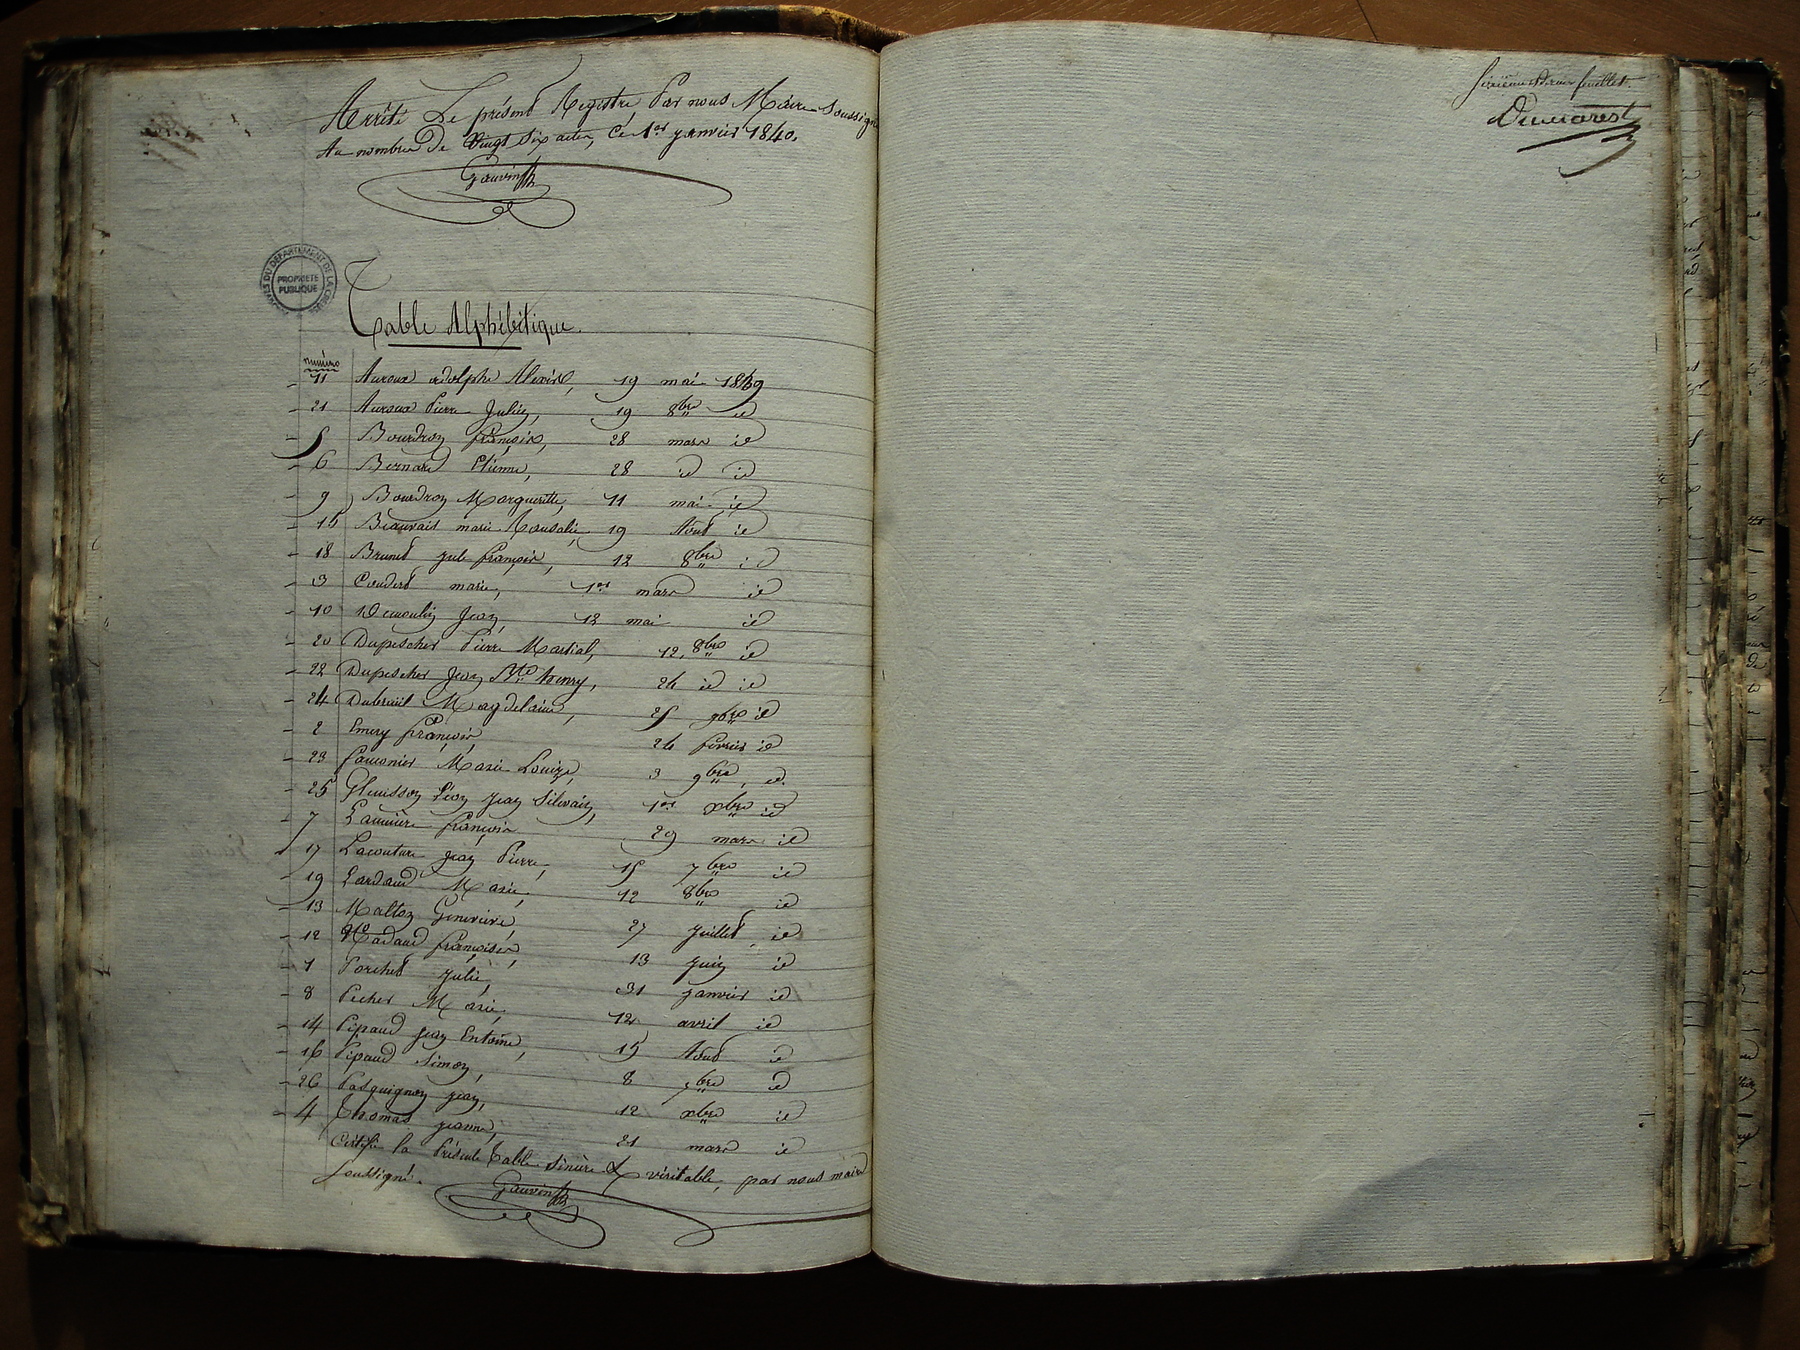 Arrêté Le présent Registre, Par nous Maire Soussigné
Au nombre de Vingt Six actes, Ce 1er janvier 1840.
Gauvin
ARCHIVES DU DÉPARTEMENT DE LA CREUSE
PROPRIÉTÉ
PUBLIQUE
Table Alphébétique.
numéro
11 Auroux adolphe Alexis, 19 mai 1839
21 Auroux Pierre Julien, 19 8bre id
5 Bourdron françois, 28 mars id
6 Bernard Etienne, 28 id id
9 Bourdron Marguerite, 11 mai id
15 Beauvais marie Rousalie, 19 Aout id
18 Brunet jule françois, 12 8bre id
3 Coudert marie, 1er mars id
10 Demoulin Jean, 12 mai id
20 Dupescher Pierre Martial, 12, 8bre id
22 Dupescher Jean Bte henry, 26 id id
24 Dubreuil Magdelaine, 25 9bre id
2 Emery françois, 26 février id
23 Marie Louize, 3 9bre, id.
25 Jean Silvain, 1er xbre id
7 françois 29 mars id
17 Lacouture Jean Pierre, 15 7bre id
19 Lardaud Marie, 12 8bre id
13 Malton Genevieve, 27 Juillet, id
12 Nadaud françoise, 13 Juin id
1 Porchet Julie, 31 janvier id
8 Pecher Marie, 12 avril id
14 Pipaud Jean Entoine, 15 Aout id
16 Pipaud Simon, 8 7bre id
26 Pasquignon Jean, 12 xbre id
4 Thomas jeanne, 21 mars id
Certifie la Présente Table Sincère & véritable, par nous maire
soussigné.
Gauvin
feuillet.
Dumarest